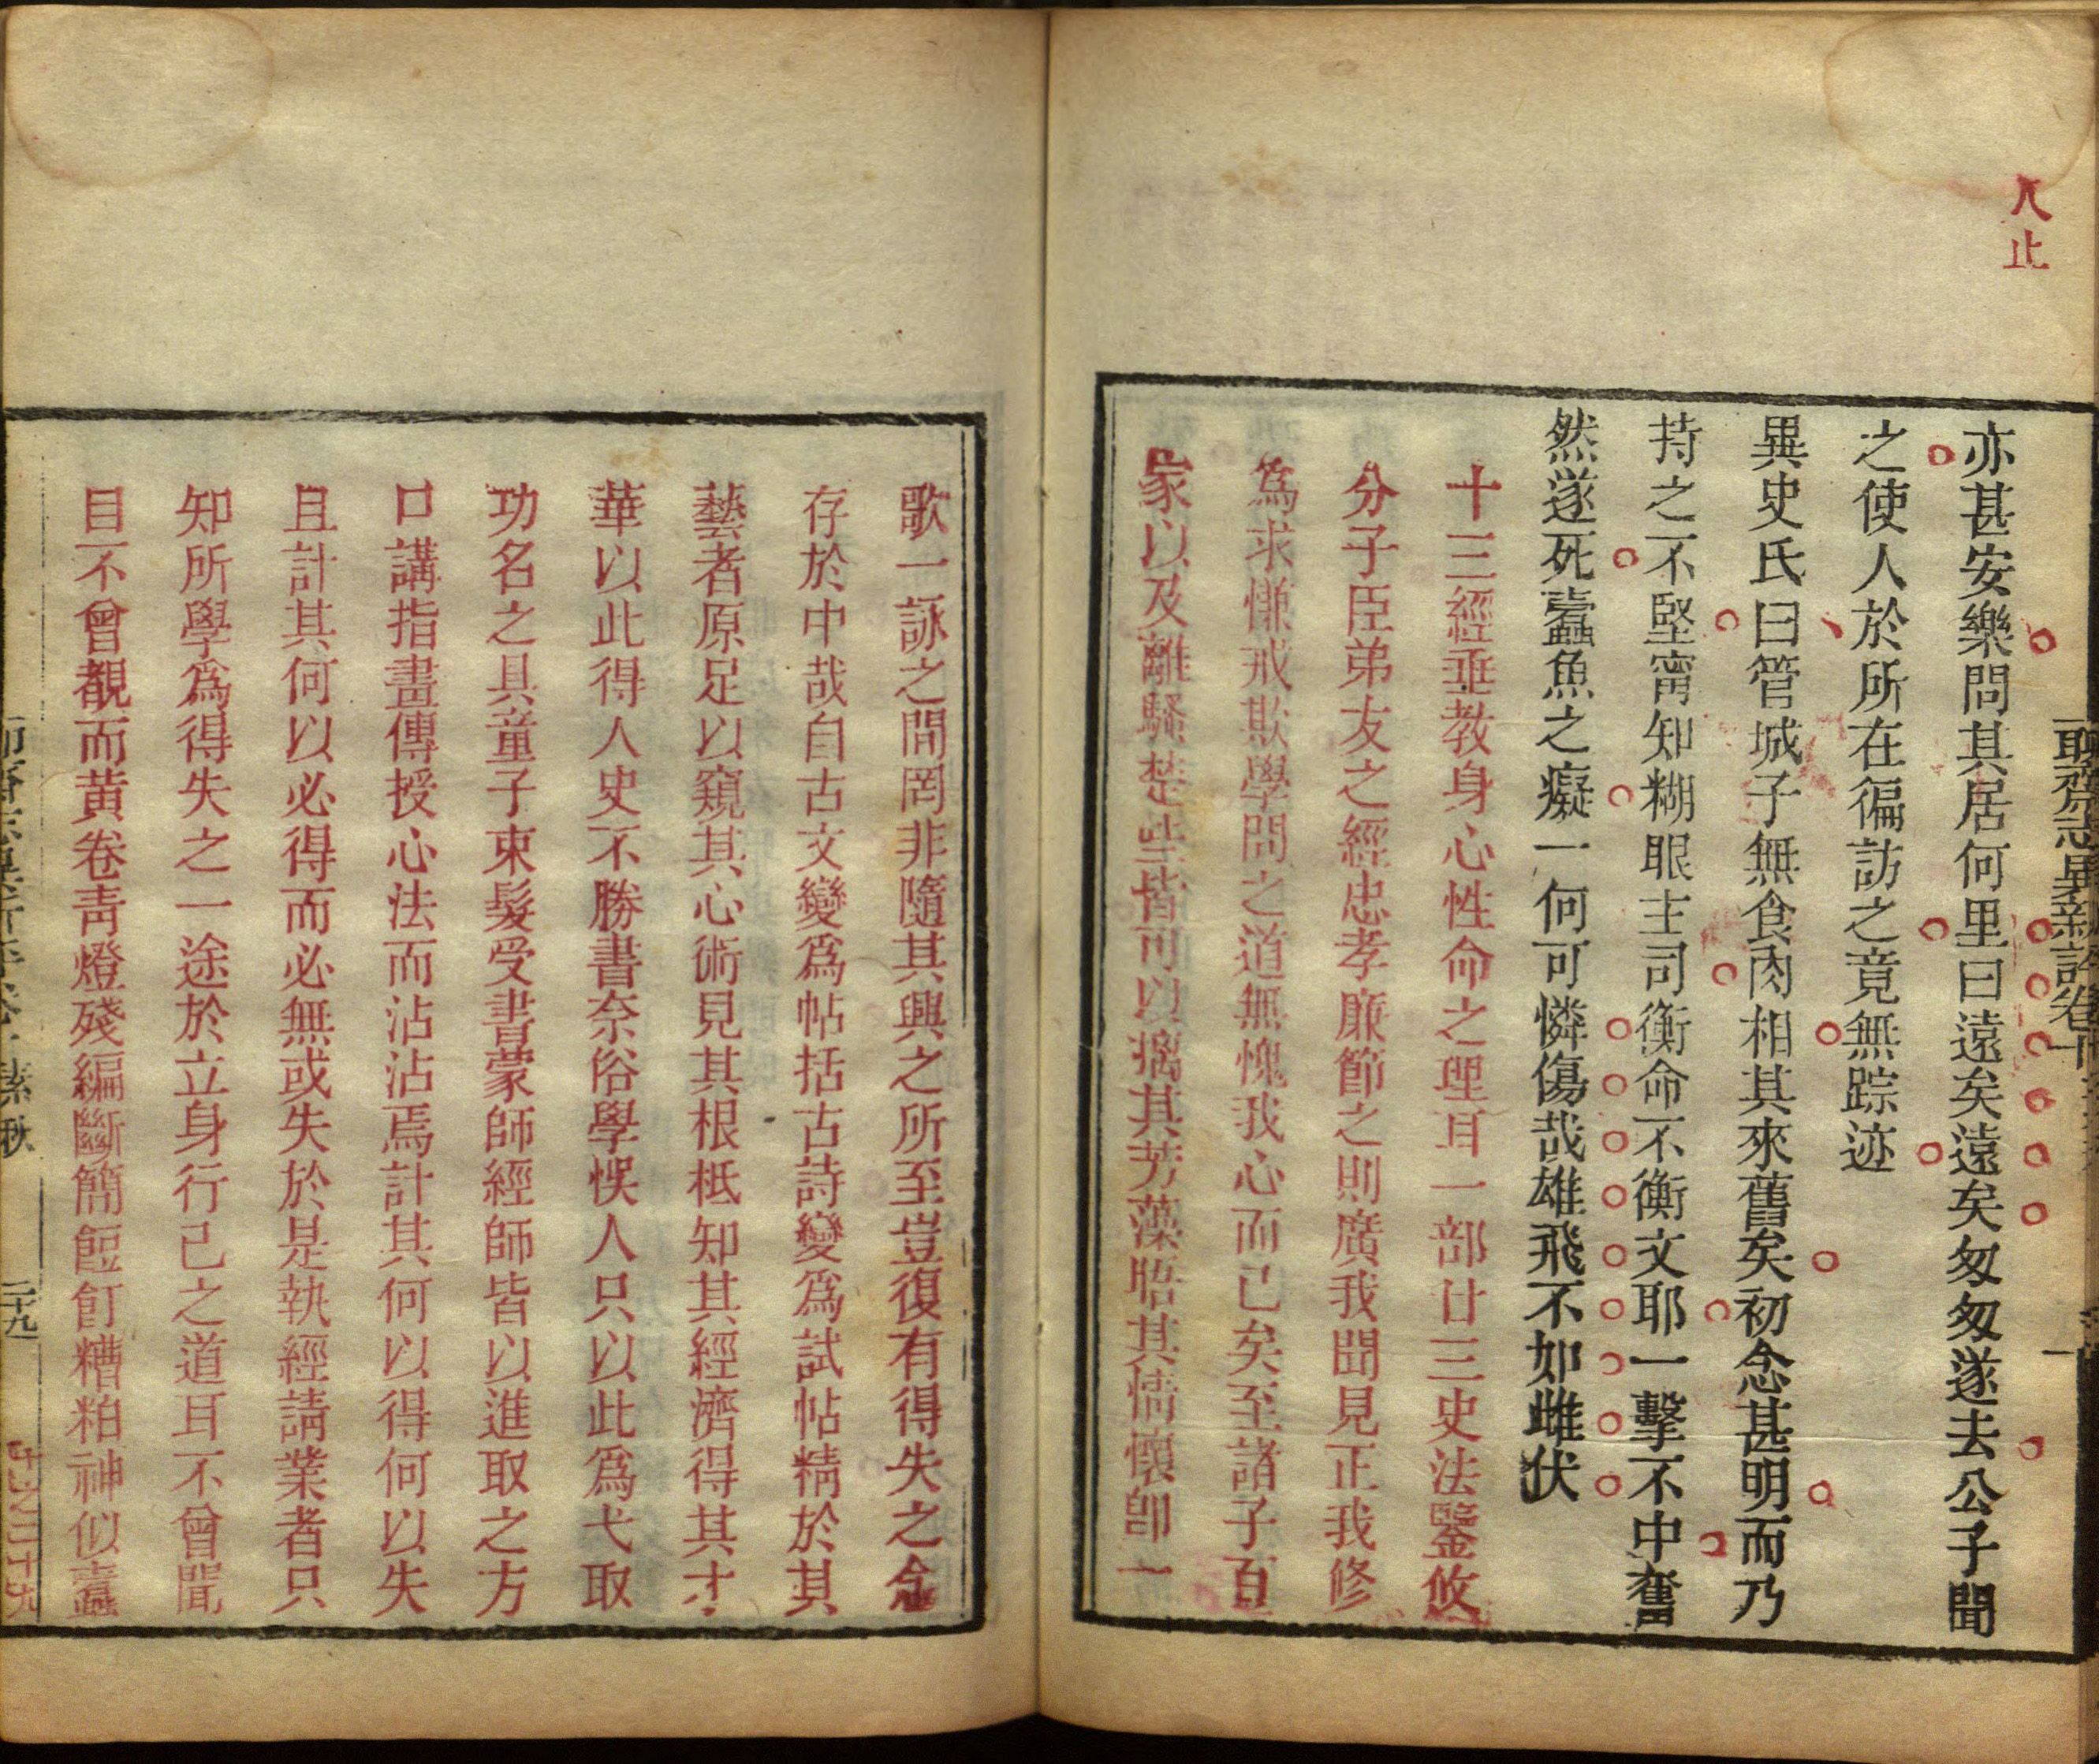 聊齋志異新評卷十
人止
亦甚安樂問其居何里曰遠矣遠矣匆匆遂去公子聞
之使人於所在徧訪之竟無踪迹
異史氏曰管城子無食肉相其來舊矣初念甚明而乃
持之不堅甯知糊眼主司衡命不衡文耶一擊不中奮
然遂死蠹魚之癡一何可憐傷哉雄飛不如雌伏
十三經垂教身心性命之理耳一部廿三史法鑒攸
分子臣弟友之經忠孝廉節之則廣我聞見正我修
為求慊戒欺學問之道無愧我心而已矣至諸子百
家以及離騷楚些皆可以摛其芳藻晤其情懷即一
歌一詠之間罔非隨其興之所至豈復有得失之念
存於中哉自古文變爲帖括古詩變爲試帖精於其
藝者原足以窺其心術見其根柢知其經濟得其才
華以此得人史不勝書奈俗學悞人只以此爲弋取
功名之具童子束髮受書蒙師經師皆以進取之方
口講指畫傳授心法而沾沾焉計其何以得何以失
且計其何以必得而必無或失於是執經請業者只
知所學爲得失之一途於立身行己之道耳不曾聞
目不曾覩而黃卷靑燈殘編斷簡餖飣糟粕神似蠹
素秋
二十九